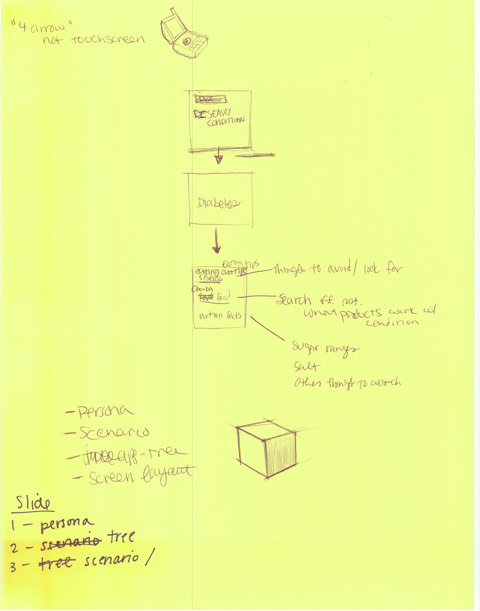 "4 arrow"
not touchscreen
DISEASE/
CONDITION
Diabetes
eating tips
things to avoid/look for
chain
food
Search ff rest.
what products work w/
condition
sugar ranges
salt
other things to watch
- persona
- Scenario
- tree
- screen layout
Slide
1 - persona
2 - scenario tree
3 - tree scenario /